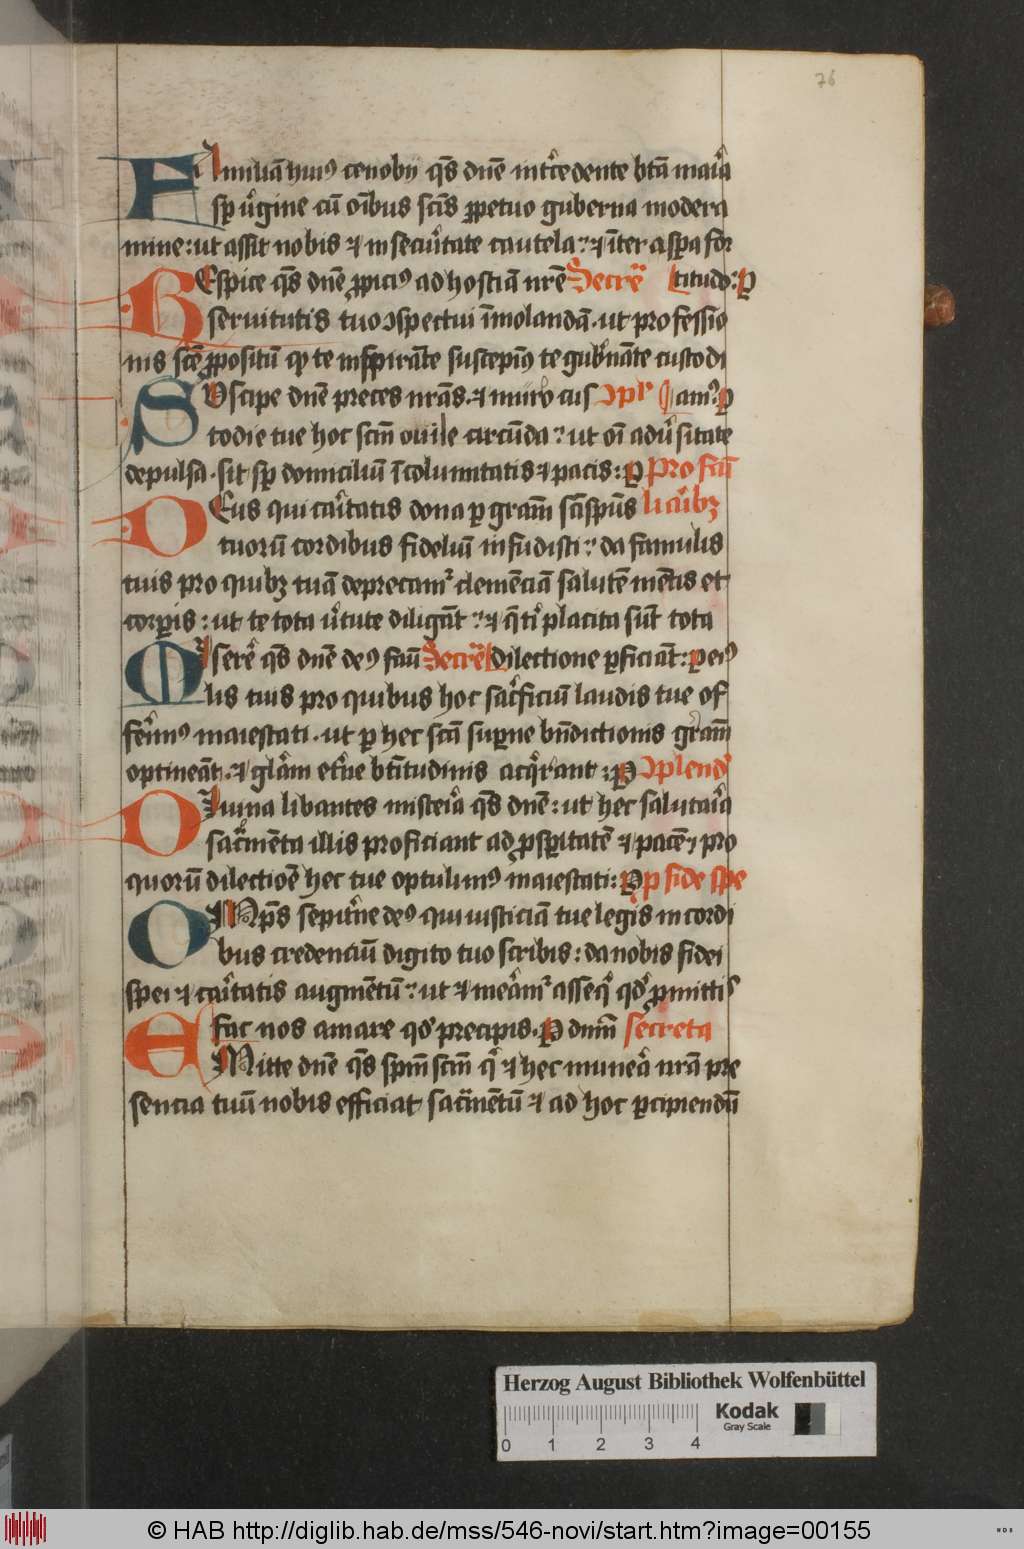 76
FAmiliā huiꝰ cenobij q̄s dn̄e int̉cedente btā maīa
sp̄ v̉gine cū oībus sc̄is ꝑpetuo guberna modera
mine: ut assit nobis ⁊ in secūitate cautela: ⁊ īter aspa for
REspice q̄s dn̄e ꝓpiciꝰ ad hostiā nr̄e Secrē titudo: P
seruitutis tuo ꝯspectui īmolandā. ut professio
nis sc̄e ꝓpositū qd te inspirāte suscepimꝰ te gub̉nāte custodi
SUscipe dn̄e preces nr̄as. ⁊ muro cus ꝯpl' amꝰ. P
todie tue hoc sc̄m ouile circūda: ut oī adū̉sitate
depulsa. sit sp̄ domicilium īcolumitatis ⁊ pacis: P Pro fam̄
DEus qui caritatis dona ꝑ gram̄ sc̄i spūs liarib⁊
tuorū cordibus fideliū infudisti: da famulis
tuis pro quib⁊ tuā deprecamur clemēciā salutē mētis et
corꝑis: ut te tota v̉tute diligāt: ⁊ q̄ tⁱ placita sūt tota
MIserē q̄s dn̄e deꝰ fam̄ Secrē dilectione ꝑficiāt: P eiꝰ
lis tuis pro quibus hoc sac̉ficiū laudis tue of
fer̉imꝰ maiestati. ut ꝑ hec sc̄a suꝑne bn̄dictionis gram̄
optineāt. ⁊ gl̄am et̉ne btitudinis acq̉rant: P ꝯplend'
DIuina libantes misteīa q̄s dn̄e: ut hec salutaīa
sac̉mēta illis proficiant ad ꝓsꝑitatē ⁊ pacē, pro
quorū dilectiōe hec tue optulimꝰ maiestati: P P fide spe
OMnp̄s sepit̉ne deꝰ qui iusticiā tue legis in cordi
bus credenciū digito tuo scribis: da nobis fidei
spei ⁊ caritatis augmētū: ut ⁊ meāmur asseq̉ qd' ꝓmittis
fac nos amare qd' precipis. P dn̄m secreta
EMitte dn̄e q̄s spm̄ sc̄m q̉ ⁊ hec muneā nr̄a pre
sencia tuū nobis efficiat sac̉mētū ⁊ ad hoc ꝑcipiendū
Herzog August Bibliothek Wolfenbüttel
Kodak
Gray Scale
0 1 2 3 4
© HAB http://diglib.hab.de/mss/546-novi/start.htm?image=00155